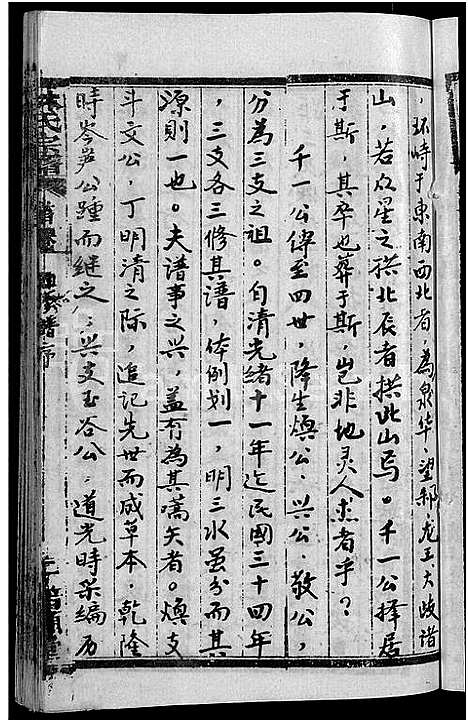 ，环峙于东南西北者，為泉华、望郝、龙王大歧诸
山，若众星之拱北辰者拱此山焉。千一公择居
于斯，其卒也葬于斯，岂非地灵人杰者乎？
千一公傳至四世，降生煥公、兴公、敬公，
分為三支之祖。自清光緒十一年迄民國三十四年
，三支各三修其谱，体例划一，明三水虽分而其
源则一也。夫谱事之兴，盖有為其嚆矢者。煥支
斗文公，丁明清之际，追记先世而成草本，乾隆
時岑岁公踵而继之；兴支玉谷公，道光時采编历
氏宗谱
首卷
谱序